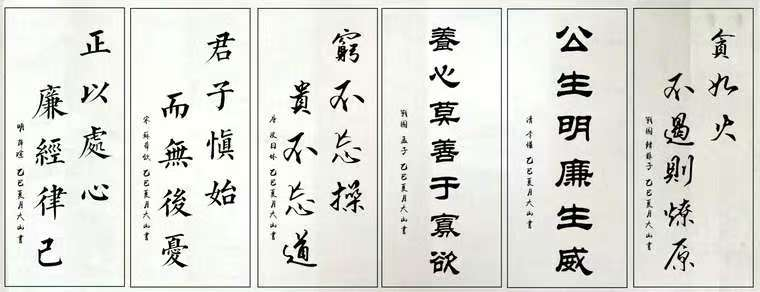 貪如火
不遏則燎原
戰國 韓非子 乙巳夏月大山書
公生明廉生威
清 李惺 乙巳夏月大山書
養心莫善于寡欲
戰國 孟子 乙巳夏月大山書
窮不忘操
貴不忘道
唐 皮日休 乙巳夏月大山書
君子慎始
而無後憂
宋 蘇舜欽 乙巳夏月大山書
正以處心
廉經律己
明 薛瑄 乙巳夏月大山書